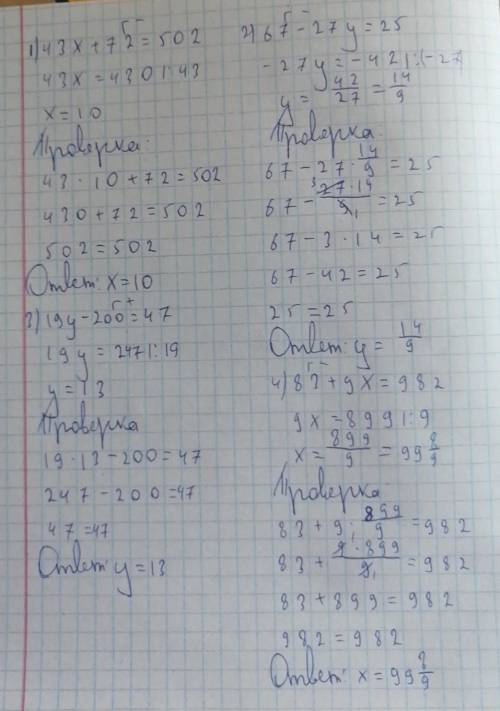 1) 43x + 72 = 502
43x = 430 | : 43
x = 10
Проверка:
43 · 10 + 72 = 502
430 + 72 = 502
502 = 502
Ответ: x = 10
3) 19y - 200 = 47
19y = 247 | : 19
y = 13
Проверка
19 · 13 - 200 = 47
247 - 200 = 47
47 = 47
Ответ: y = 13
2) 67 - 27y = 25
-27y = -42 | : (-27)
y = 42/27 = 14/9
Проверка:
67 - 27 · 14/9 = 25
67 - 3 27·14/9 1 = 25
67 - 3 · 14 = 25
67 - 42 = 25
25 = 25
Ответ: y = 14/9
4) 83 + 9x = 982
9x = 899 | : 9
x = 899/9 = 99 8/9
Проверка
83 + 9 · 899/9 = 982
83 + 9·899/9 1 = 982
83 + 899 = 982
982 = 982
Ответ: x = 99 8/9